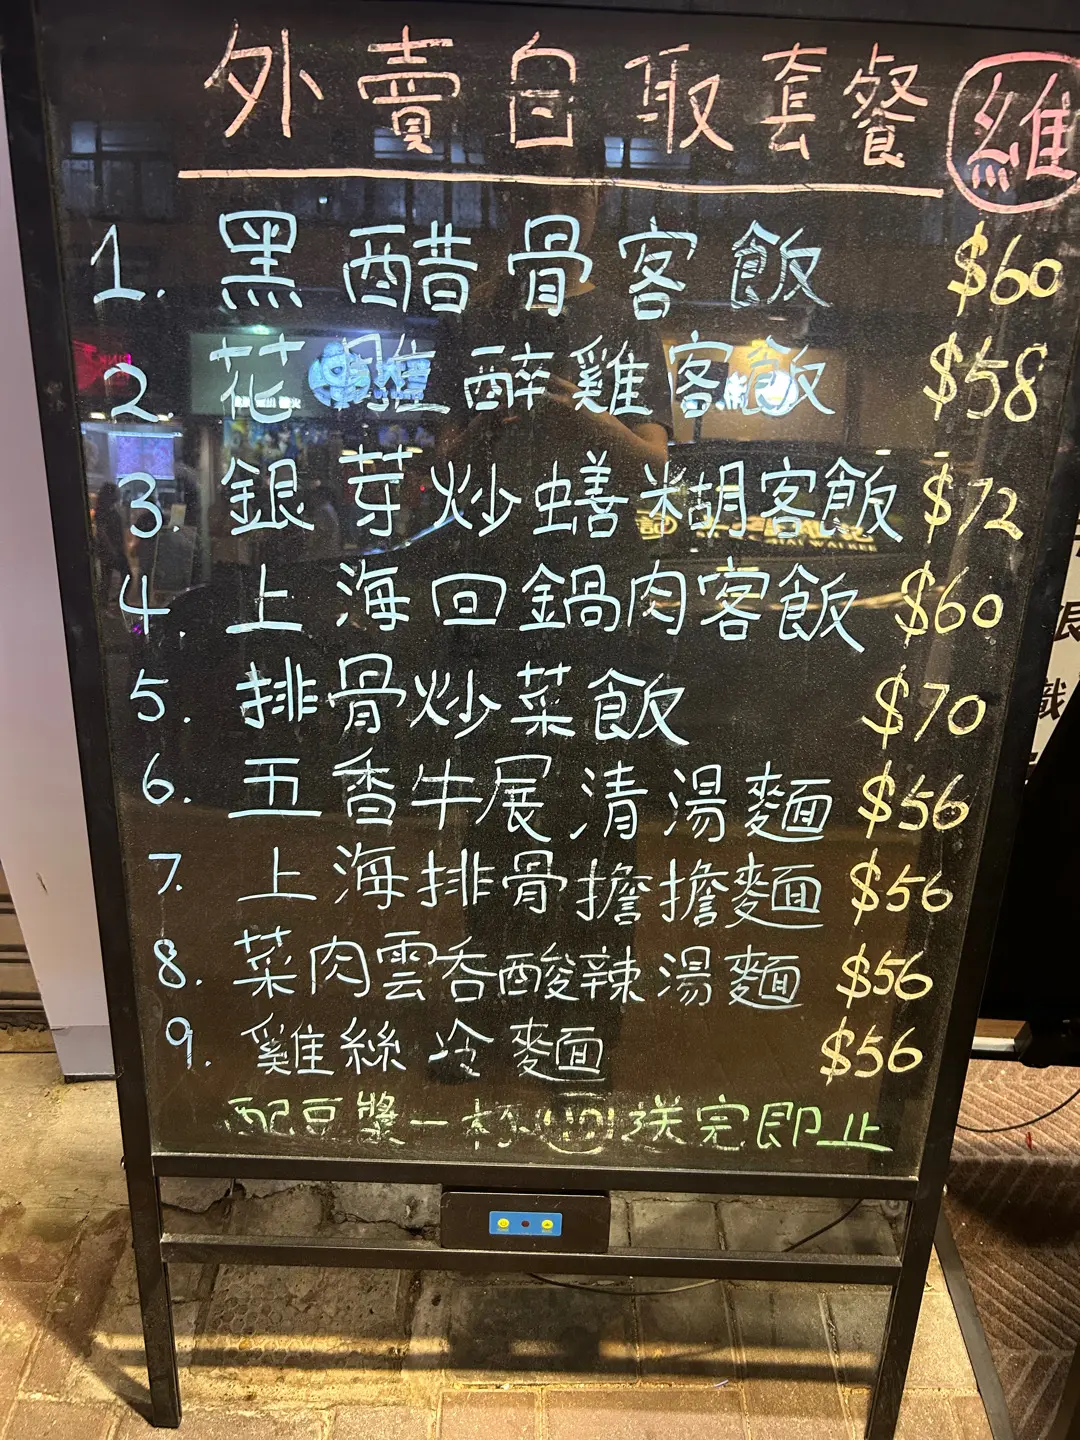 外賣自取套餐 維
1. 黑醋骨客飯 $60
2. 花雕醉雞客飯 $58
3. 銀芽炒蟮糊客飯 $72
4. 上海回鍋肉客飯 $60
5. 排骨炒菜飯 $70
6. 五香牛展清湯麵 $56
7. 上海排骨擔擔麵 $56
8. 菜肉雲吞酸辣湯麵 $56
9. 雞絲冷麵 $56
配豆漿一杯 送完即止